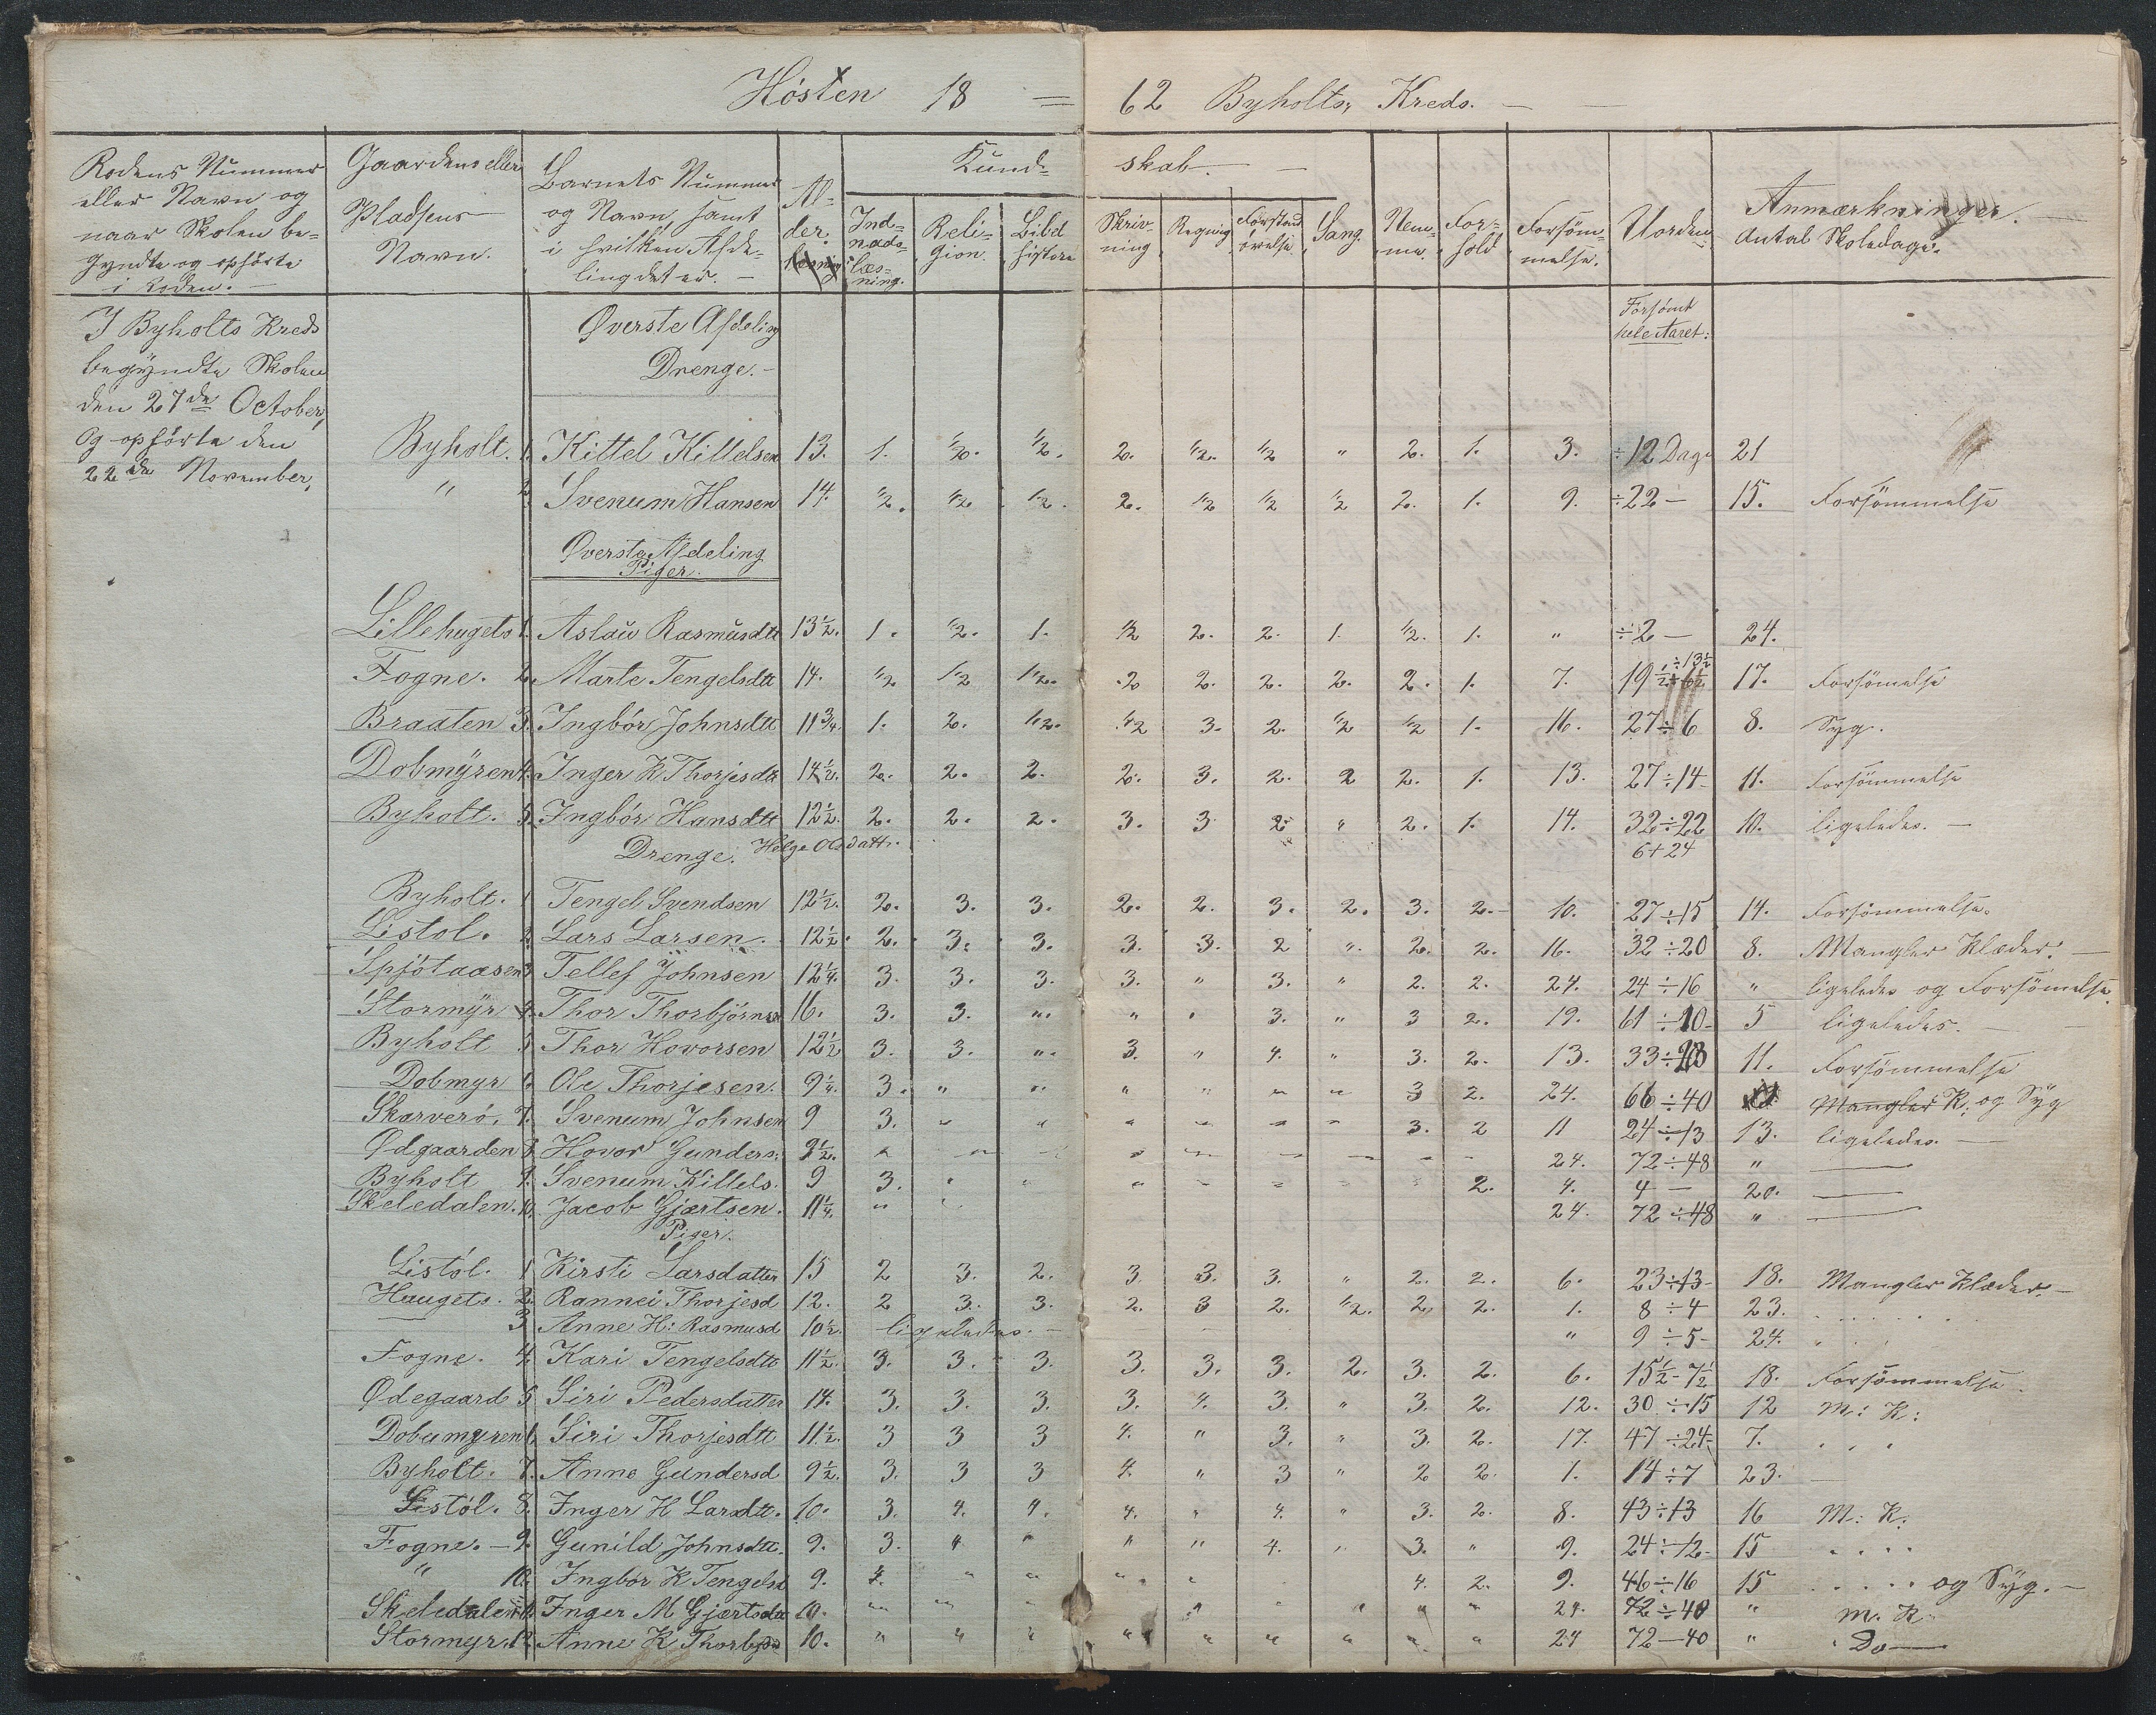 Hösten 18 = 62 Byholts, Kreds. —
Rodens Nummer eller Navn og naar Skolen begyndte og ophörte i Roden. —
Gaardens eller Pladsens Navn.
Barnets Nummer og Navn samt i hvilken Afdeling det er. —
Alder.
Kundskab. —
Indnadslæsning.
Religion.
Bibel historie
Skrivning
Regning
Forstandövelse
Sang.
Nemme.
Forhold
Forsömmelse.
Uorden
Anmærkninger.
Antal Skoledage.
I Byholts Kreds
begyndte Skolen
den 27de October,
Og ophörte den
22de November,
Forsömt
hele Aaret:
Øverste Afdeling
Drenge. —
Byholt. 1. Kittel Kittelsen 13. 1. 1/2. 1/2. 2. 1/2. 1/2 " 2. 1. 3. ÷12 Dage 21
" 2. Svenum Hansen 14. 1/2. 1/2 1/2. 2. 1/2 1/2 1/2 2. 1. 9. ÷22 — 15. Forsömmelse
Øverste Afdeling
Piger.
Lillehugets 1. Aslau Rasmusdtt 13½. 1. 1/2. 1. 1/2 2. 2. 1. 1/2. 1. " ÷2 — 24.
Fogne. 2. Marte Tengelsdtt 14. 1/2 1/2 1/2. 2 2. 2. 2. 2. 1. 7. 19½ ÷13½ 17. Forsömelse
Braaten 3. Ingbör Johnsdtt 11¾. 1. 2. 1/2. 1/2 3. 2. 1/2 1/2 1. 16. 27÷6 8. Syg.
Dobmyren 4. Inger K Thorjesdtt 14½. 2. 2. 2. 2. 3. 2. 2 2. 1. 13. 27÷14 11. Forsömmelse
Byholt. 5. Ingbör Hansdtt 12½. 2. 2. 2. 3. 3 2 " 2. 1. 14. 32÷22 10. ligeledes. —
Drenge. Helge Oldatt. 6+24
Byholt. 1 Tengel Svendsen 12½. 2. 3. 3. 2. 2. 3. 2. 3. 2. 10. 27÷15 14. Forsömmelse.
Listol. 2. Lars Larsen. 12½. 2. 3. 3. 3. 3. 2 ". 2. 2. 16. 32÷20 8. Mangler Klæder. —
Spjötaasen 3 Tellef Johnsen 12¼. 3. 3. 3. 3. " 3. " 2. 2. 24. 24÷16 " ligeledes og Forsömelse.
Stormyr 4. Thor Thorbjörnsen 16. 3. 3. " " " 3. " 3 2. 19. 61÷10 5 ligeledes. —
Byholt 5 Thor Hovorsen 12½ 3. 3. " 3. " 4. " 3. 2. 13. 33÷ 11. Forsömmelse
Dobmyr 6. Ole Thorjesen. 9¼. 3. " " " " " " 3 2. 24. 66÷40 Mangler K: og Syg
Skarverö. 7. Svenum Johnsen 9 3. " " " " " " 3. 2 11 24÷13 13. ligeledes. —
Ødgaarden 8 Hovor Gunders: 9½. " " " " " " " " " 24. 72÷48 " —
Byholt 9. Svenum Kittels. 9 3. " " " " " 2. 4. 4 — 20. —
Skeledalen. 10. Jacob Gjærtsen. 11¼. " " 24. 72÷48 " —
Piger.
Listöl. 1 Kirsti Larsdatter 15 2 3. 2. 3. 3. 3. " 2. 2. 6. 23÷13 18. Mangler Klæder. —
Haugets. 2. Rannei Thorjesd 12. 2 3. 3. 2. 3 2. 1/2. 2. 2. 1. 8÷4 23. . . . . .
— 3 Anne H: Rasmusd 10½. ligeledes. — " 9÷5 24.
Fogne. 4. Kari Tengelsdtt 11½. 3. 3. 3. 3. 3. 3. 2. 3. 2. 6. 15½-7½ 18. Forsömmelse.
Ødegaard 5 Siri Pedersdatter 14. 3. 3. 3. 3. 4. 3. " 3. 2. 12. 30÷15 12 M: K:
Dobumyren 6. Siri Thorjesdtt 11½. 3 3 3 4. " 3. " 3. 2. 17. 47÷24 7. . . .
Byholt. 7. Anne Gundersd 9½. 3. 3 3 4. " 3 " 2 2. 1. 14÷7 23. —
Listöl. 8. Inger H Larsdtt. 10. 3. 4. 4. 4. " 4. " 3. 2. 8. 43÷13 16 M: K:
Fogne. — 9. Gunild Johnsdtt. 9. 3. " " " " 4. " 3. " 9. 24÷12 15 . . . .
" 10. Ingbör K Tengelsd 9. 4. " " " " 4. 2. 9. 46÷16 15 . . . . og Syg. —
Skeledalen 11. Inger M Gjærtsdtt 10. " " " " " " " " 24. 72÷48 " M. K.
Stormyr. 12. Anne K Thorbjs 10. " " " " " " " " " 24 72—40 " Do —